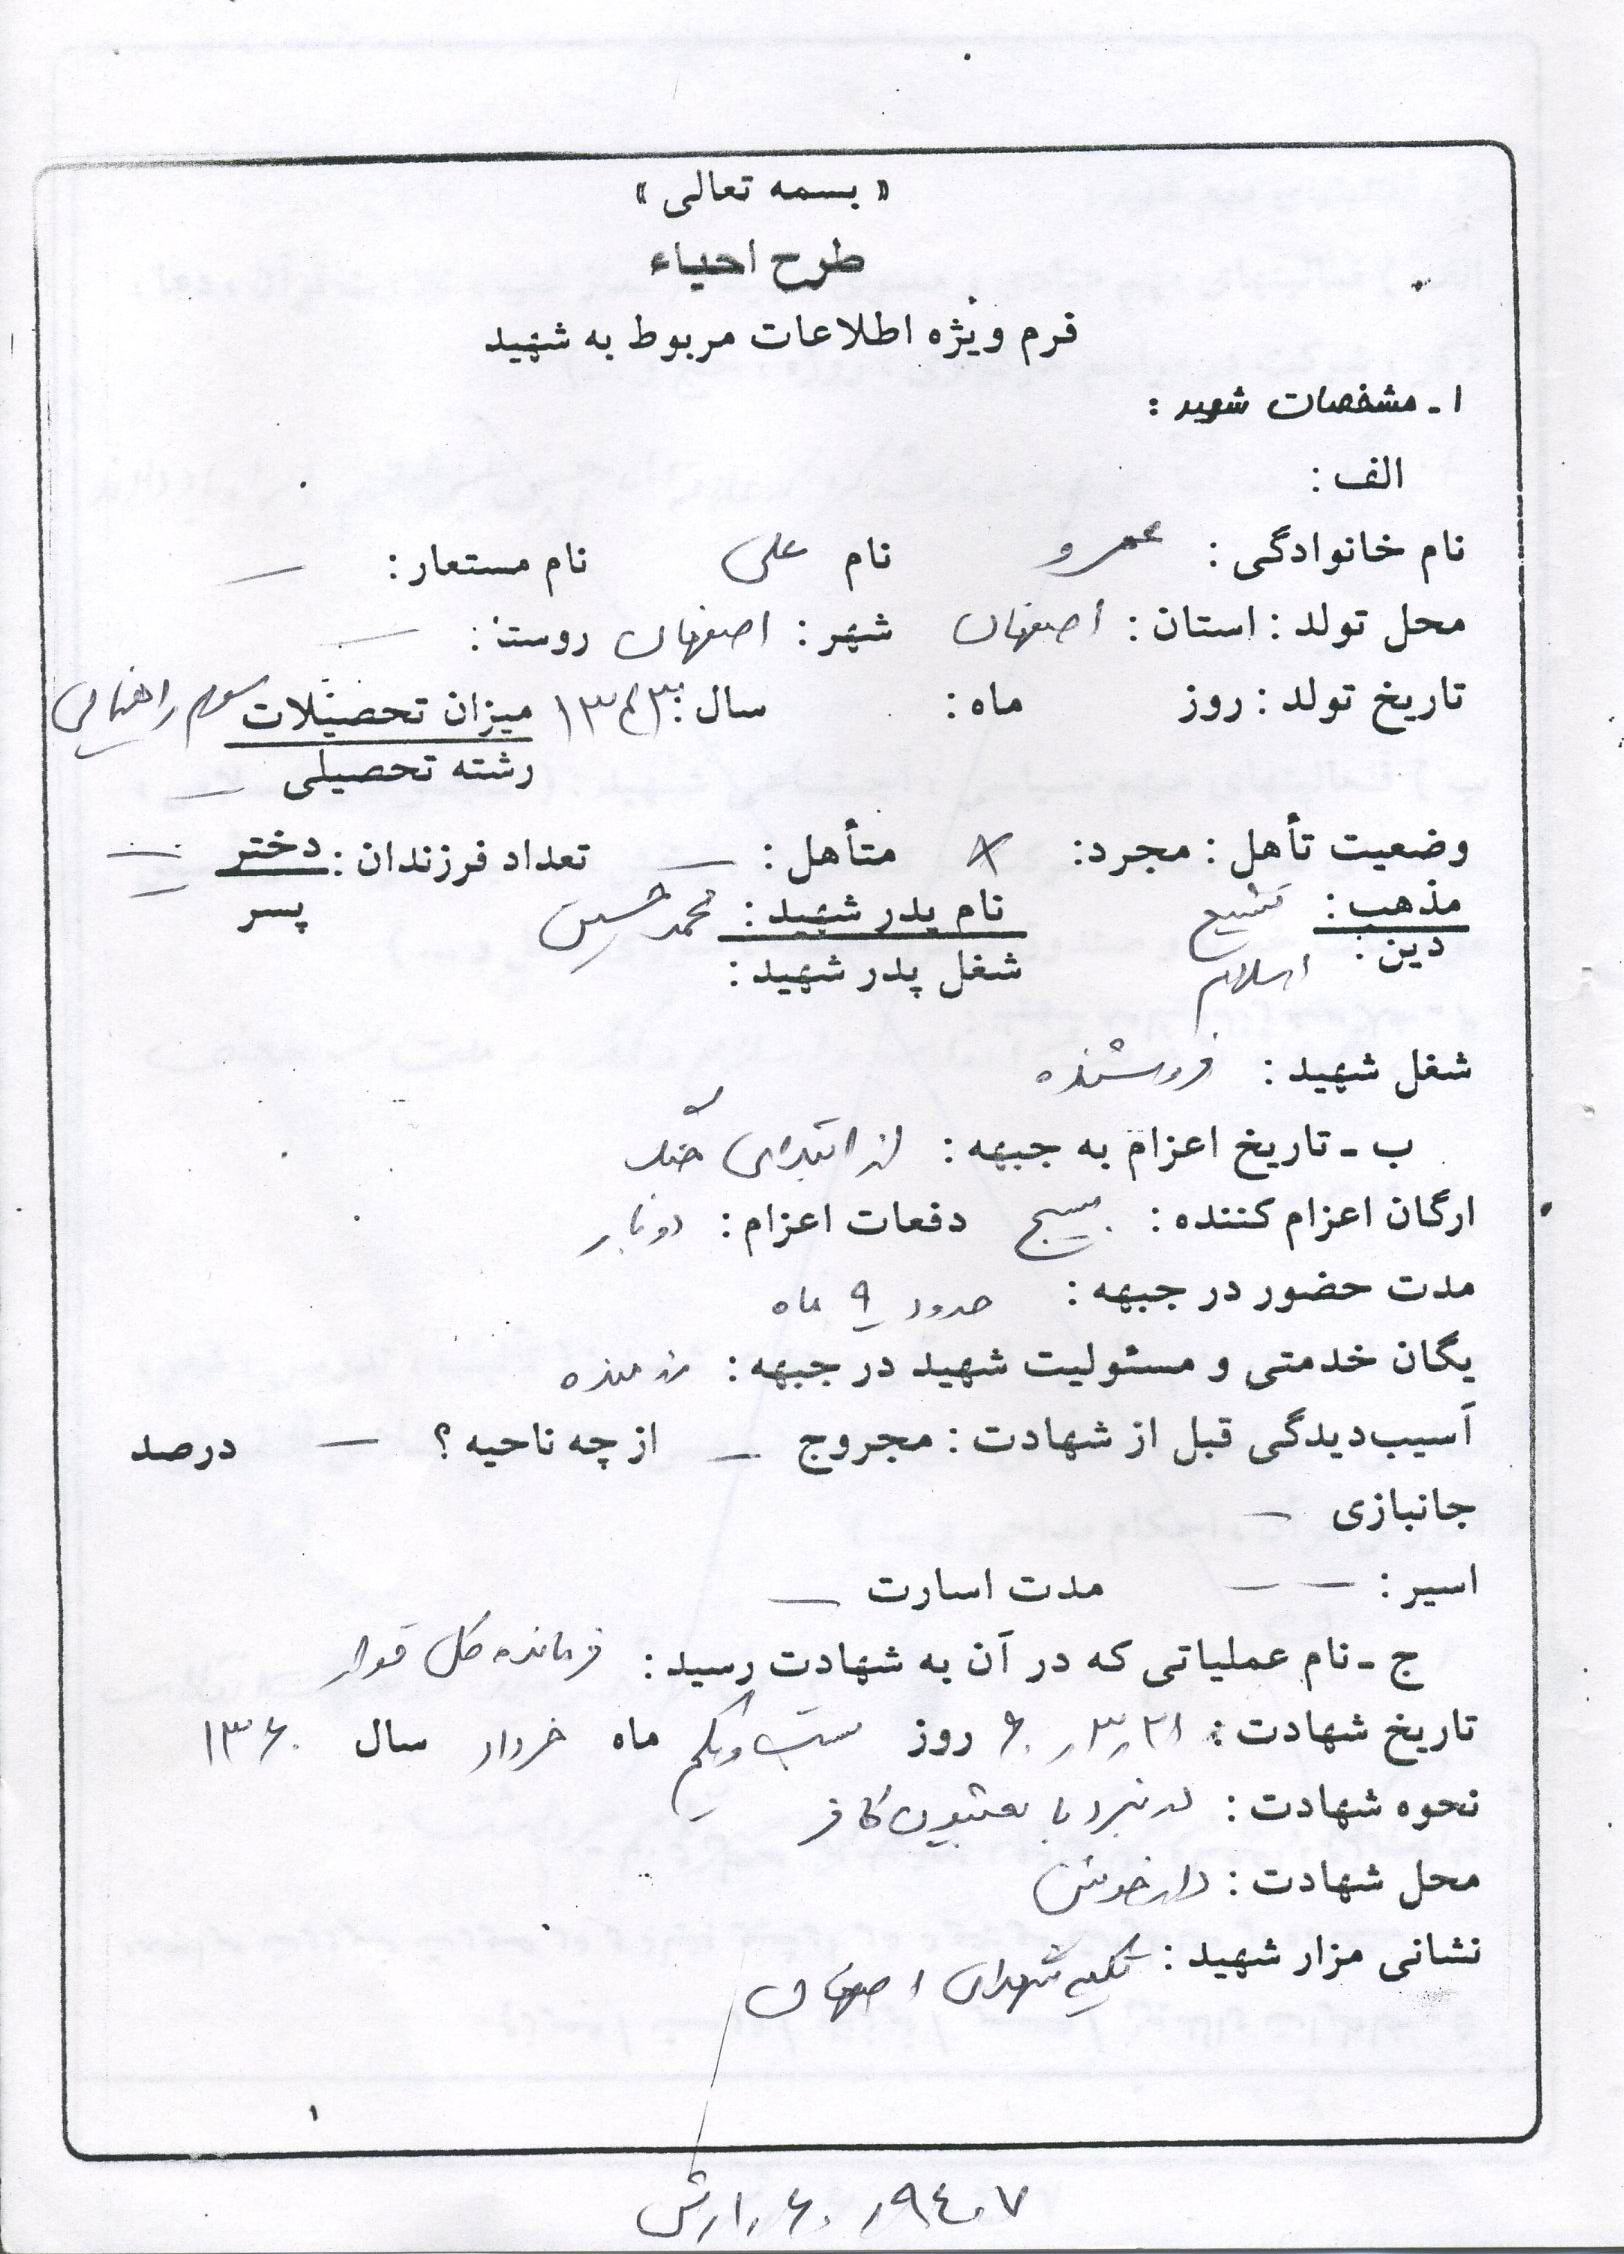 « بسمه تعالی »
طرح احیاء
فرم ویژه اطلاعات مربوط به شهید
۱ - مشخصات شهید :
الف :
نام خانوادگی : عمرو نام علی نام مستعار : —
محل تولد : استان : اصفهان شهر : اصفهان روستا : —
تاریخ تولد : روز ماه : سال : میزان تحصیلات سوم راهنمایی
رشته تحصیلی —
وضعیت تأهل : مجرد : × متأهل : — تعداد فرزندان : دختر —
پسر —
مذهب : تشیع نام پدر شهید : محمد حسین
دین : اسلام شغل پدر شهید :
شغل شهید : فروشنده
ب - تاریخ اعزام به جبهه : از ابتدای جنگ
ارگان اعزام کننده : بسیج دفعات اعزام : دوبار
مدت حضور در جبهه : حدود ۹ ماه
یگان خدمتی و مسئولیت شهید در جبهه : رزمنده
آسیب‌دیدگی قبل از شهادت : مجروح — از چه ناحیه ؟ — درصد
جانبازی —
اسیر : — — مدت اسارت —
ج - نام عملیاتی که در آن به شهادت رسید : فرمانده کل قوا
تاریخ شهادت : ۲۱ ر ۳ ر ۶۰ روز بیست و یکم ماه خرداد سال ۱۳۶۰
نحوه شهادت : در نبرد با بعثیون کافر
محل شهادت : دارخوین
نشانی مزار شهید : تکیه شهدای اصفهان
۱